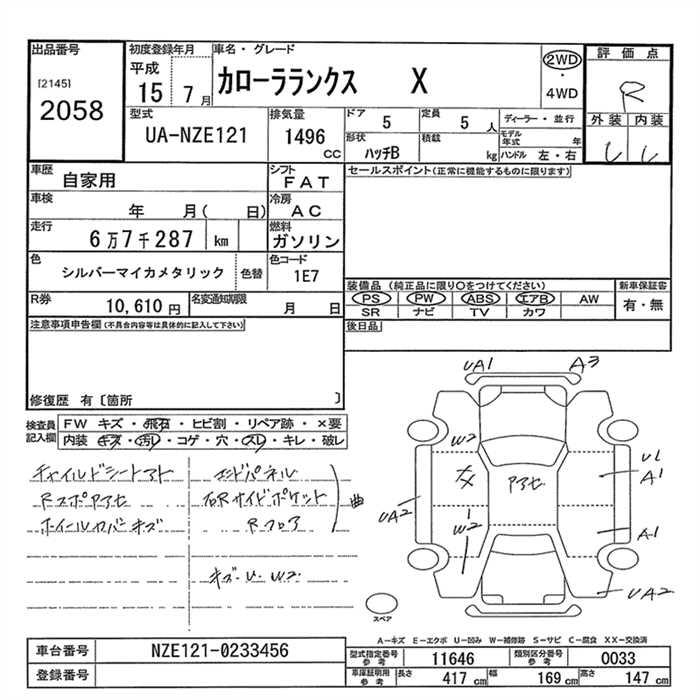 出品番号
[2145]
2058
初度登録年月
平成
15 7月
車名・グレード
カローラランクス X
2WD
・
4WD
評価点
R
外装 内装
型式
UA-NZE121
排気量
1496
CC
ドア 5
定員 5人
ディーラー・並行
形状
ハッチB
積載
kg
モデル年式 年
ハンドル 左・右
車歴
自家用
シフト
FAT
セールスポイント(正常に機能するものに限ります)
車検
年 月( 日)
冷房
AC
走行
6万7千287 km
燃料
ガソリン
色
シルバーマイカメタリック
色替
色コード
1E7
装備品(純正品に限り○をつけてください)
PS PW ABS エアB AW
SR ナビ TV カワ
新車保証書
有・無
R券
10,610円
名変通知期限
月 日
後日品
注意事項申告欄(不具合内容等は具体的に記入して下さい)
修復歴 有〔箇所 〕
検査員記入欄
FW キズ・飛石・ヒビ割・リペア跡・×要
内装 キズ・汚レ・コゲ・穴・スレ・キレ・破レ
チャイルドシートアト
Rスポアナセ
ホイールカバーキズ
エンドパネル
右Rサイドポケット
Rフロア
曲
キズ・U・W2
UA1
A3
W2
U1
A1
UA2
W2
A1
UA2
スペア
A―キズ E―エクボ U―凹み W―補修跡 S―サビ C―腐食 XX―交換済
車台番号
NZE121-0233456
登録番号
型式指定番号
参考
11646
類別区分番号
参考
0033
車庫証明用
参考
長さ 417 cm
幅 169 cm
高さ 147 cm